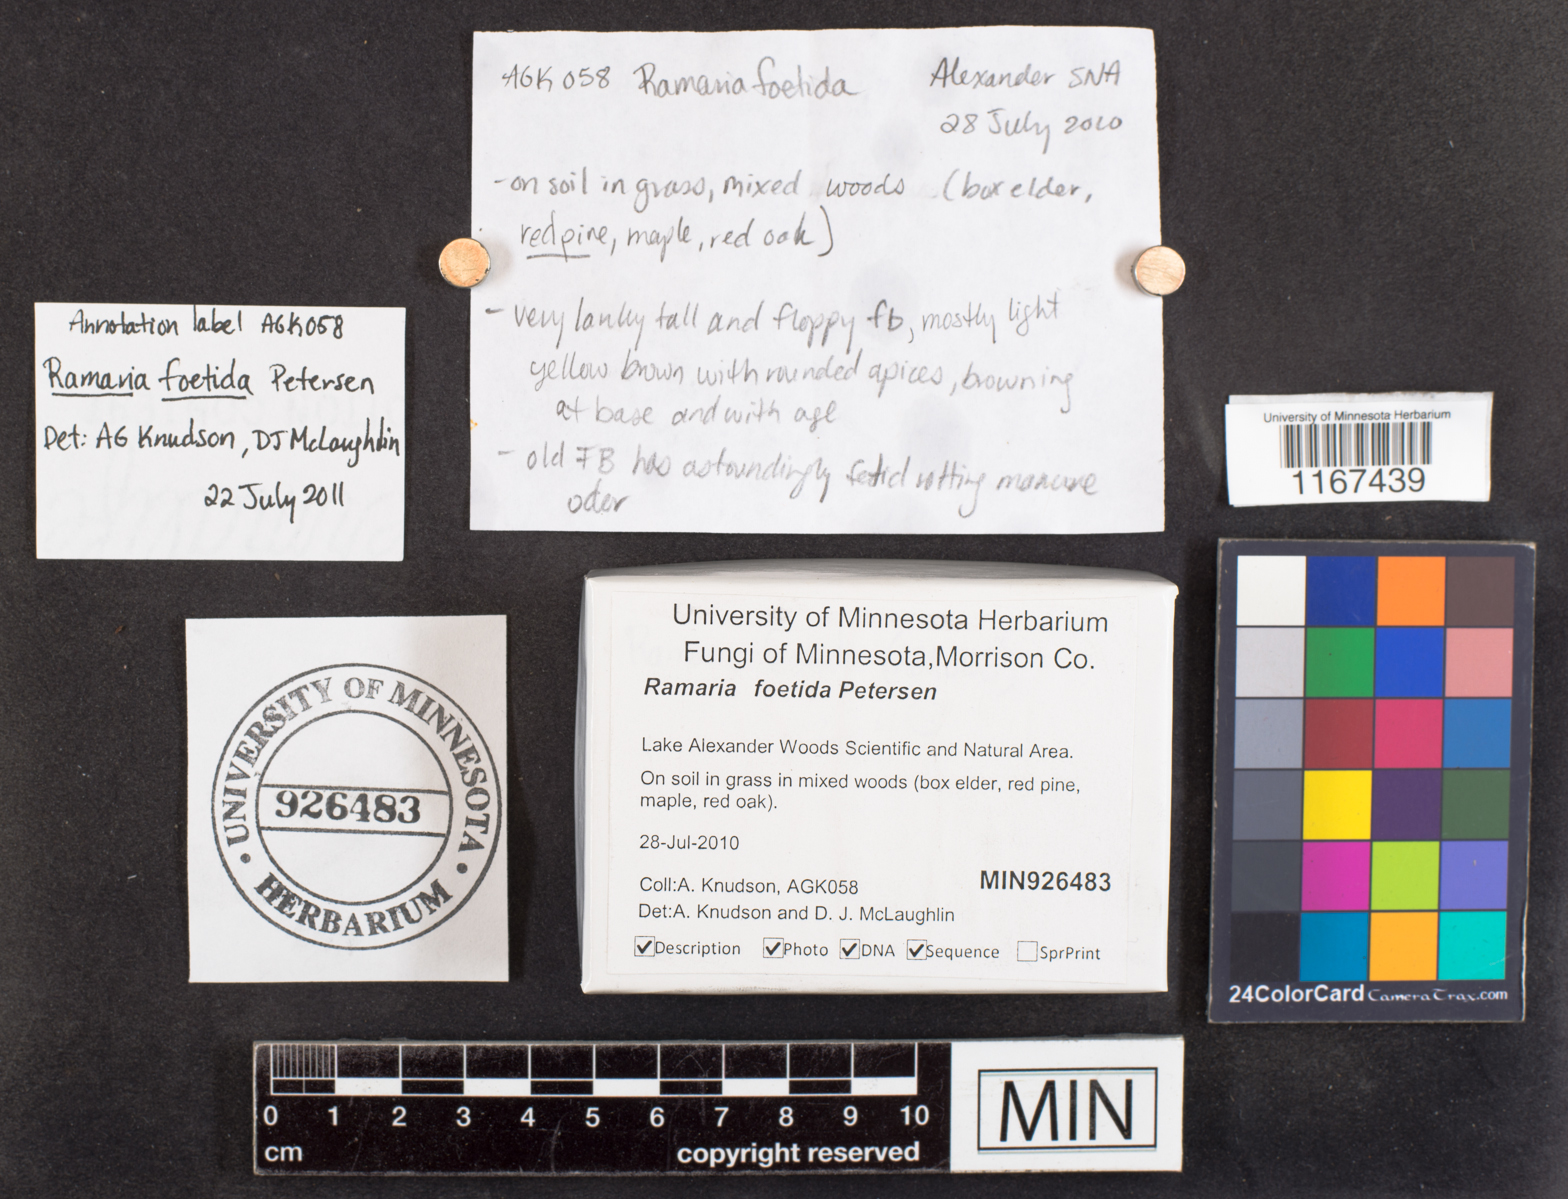 AGK058 Ramaria foetida Alexander SNA
28 July 2010
- on soil in grass, mixed woods (box elder,
red pine, maple, red oak)
- very lanky tall and floppy fb, mostly light
yellow brown with rounded apices, browning
at base and with age
- old FB has astoundingly fetid rotting manure
odor
Annotation label AGK058
Ramaria foetida Petersen
Det: AG Knudson, DJ McLaughlin
22 July 2011
University of Minnesota Herbarium
1167439
UNIVERSITY OF MINNESOTA
926483
HERBARIUM
University of Minnesota Herbarium
Fungi of Minnesota,Morrison Co.
Ramaria foetida Petersen
Lake Alexander Woods Scientific and Natural Area.
On soil in grass in mixed woods (box elder, red pine,
maple, red oak).
28-Jul-2010
MIN926483
Coll:A. Knudson, AGK058
Det:A. Knudson and D. J. McLaughlin
Description Photo DNA Sequence SprPrint
24ColorCard CameraTrax.com
0 1 2 3 4 5 6 7 8 9 10
cm copyright reserved
MIN